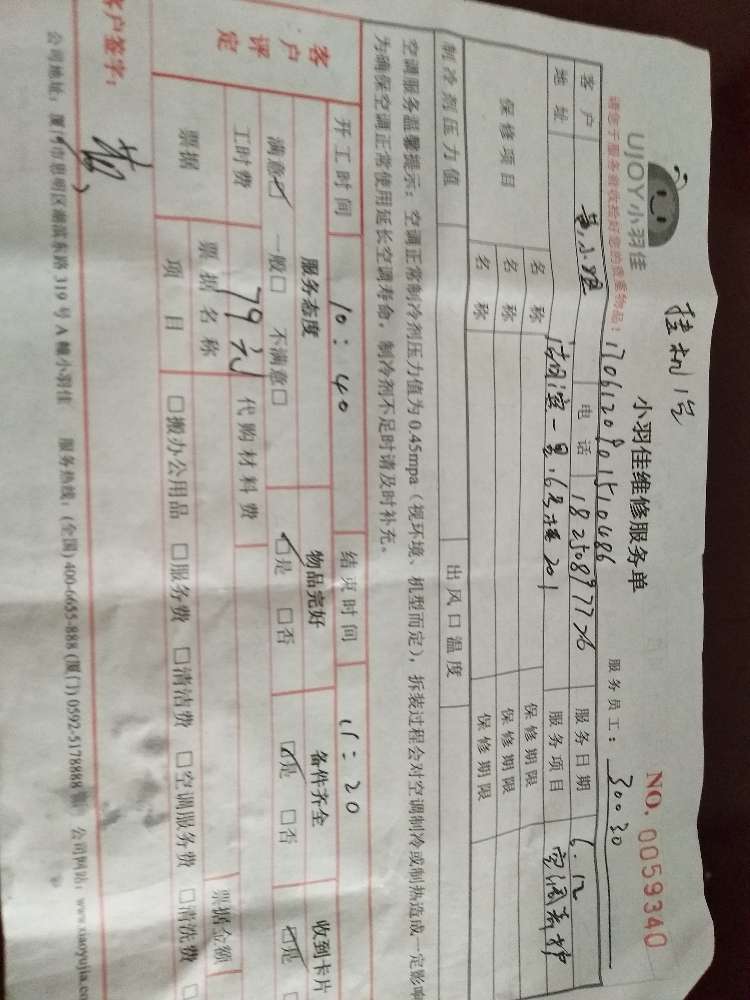 挂机1台
UJOY小羽佳
小羽佳维修服务单
NO. 0059340
请您于服务前收捡好您的贵重物品!
服务员工: 30030
客户 黄小姐 电话 服务日期 6.12
地址 湖滨一里6号楼201 服务项目 空调养护
保修项目 名称 保修期限
名称 保修期限
名称 保修期限
制冷剂压力值 出风口温度
空调服务温馨提示: 空调正常制冷剂压力值为 0.45mpa (视环境、机型而定), 拆装过程会对空调制冷或制热造成一定影响
为确保空调正常使用延长空调寿命, 制冷剂不足时请及时补充。
开工时间 10:40 结束时间 11:20
客户评定 服务态度 物品完好 备件齐全 收到卡片
满意☑ 一般□ 不满意□ ☑是 □否 ☑是 □否 ☑是
工时费 79元 代购材料费
票据 票据名称 票据金额
项目 □搬办公用品 □服务费 □清洁费 □空调服务费 □清洗费 □
客户签字: 黄
公司地址: 厦门市思明区湖滨东路 319 号 A 幢小羽佳 服务热线: (全国) 400-6655-888 (厦门) 0592-5178888 公司网站: www.xiaoyujia.co